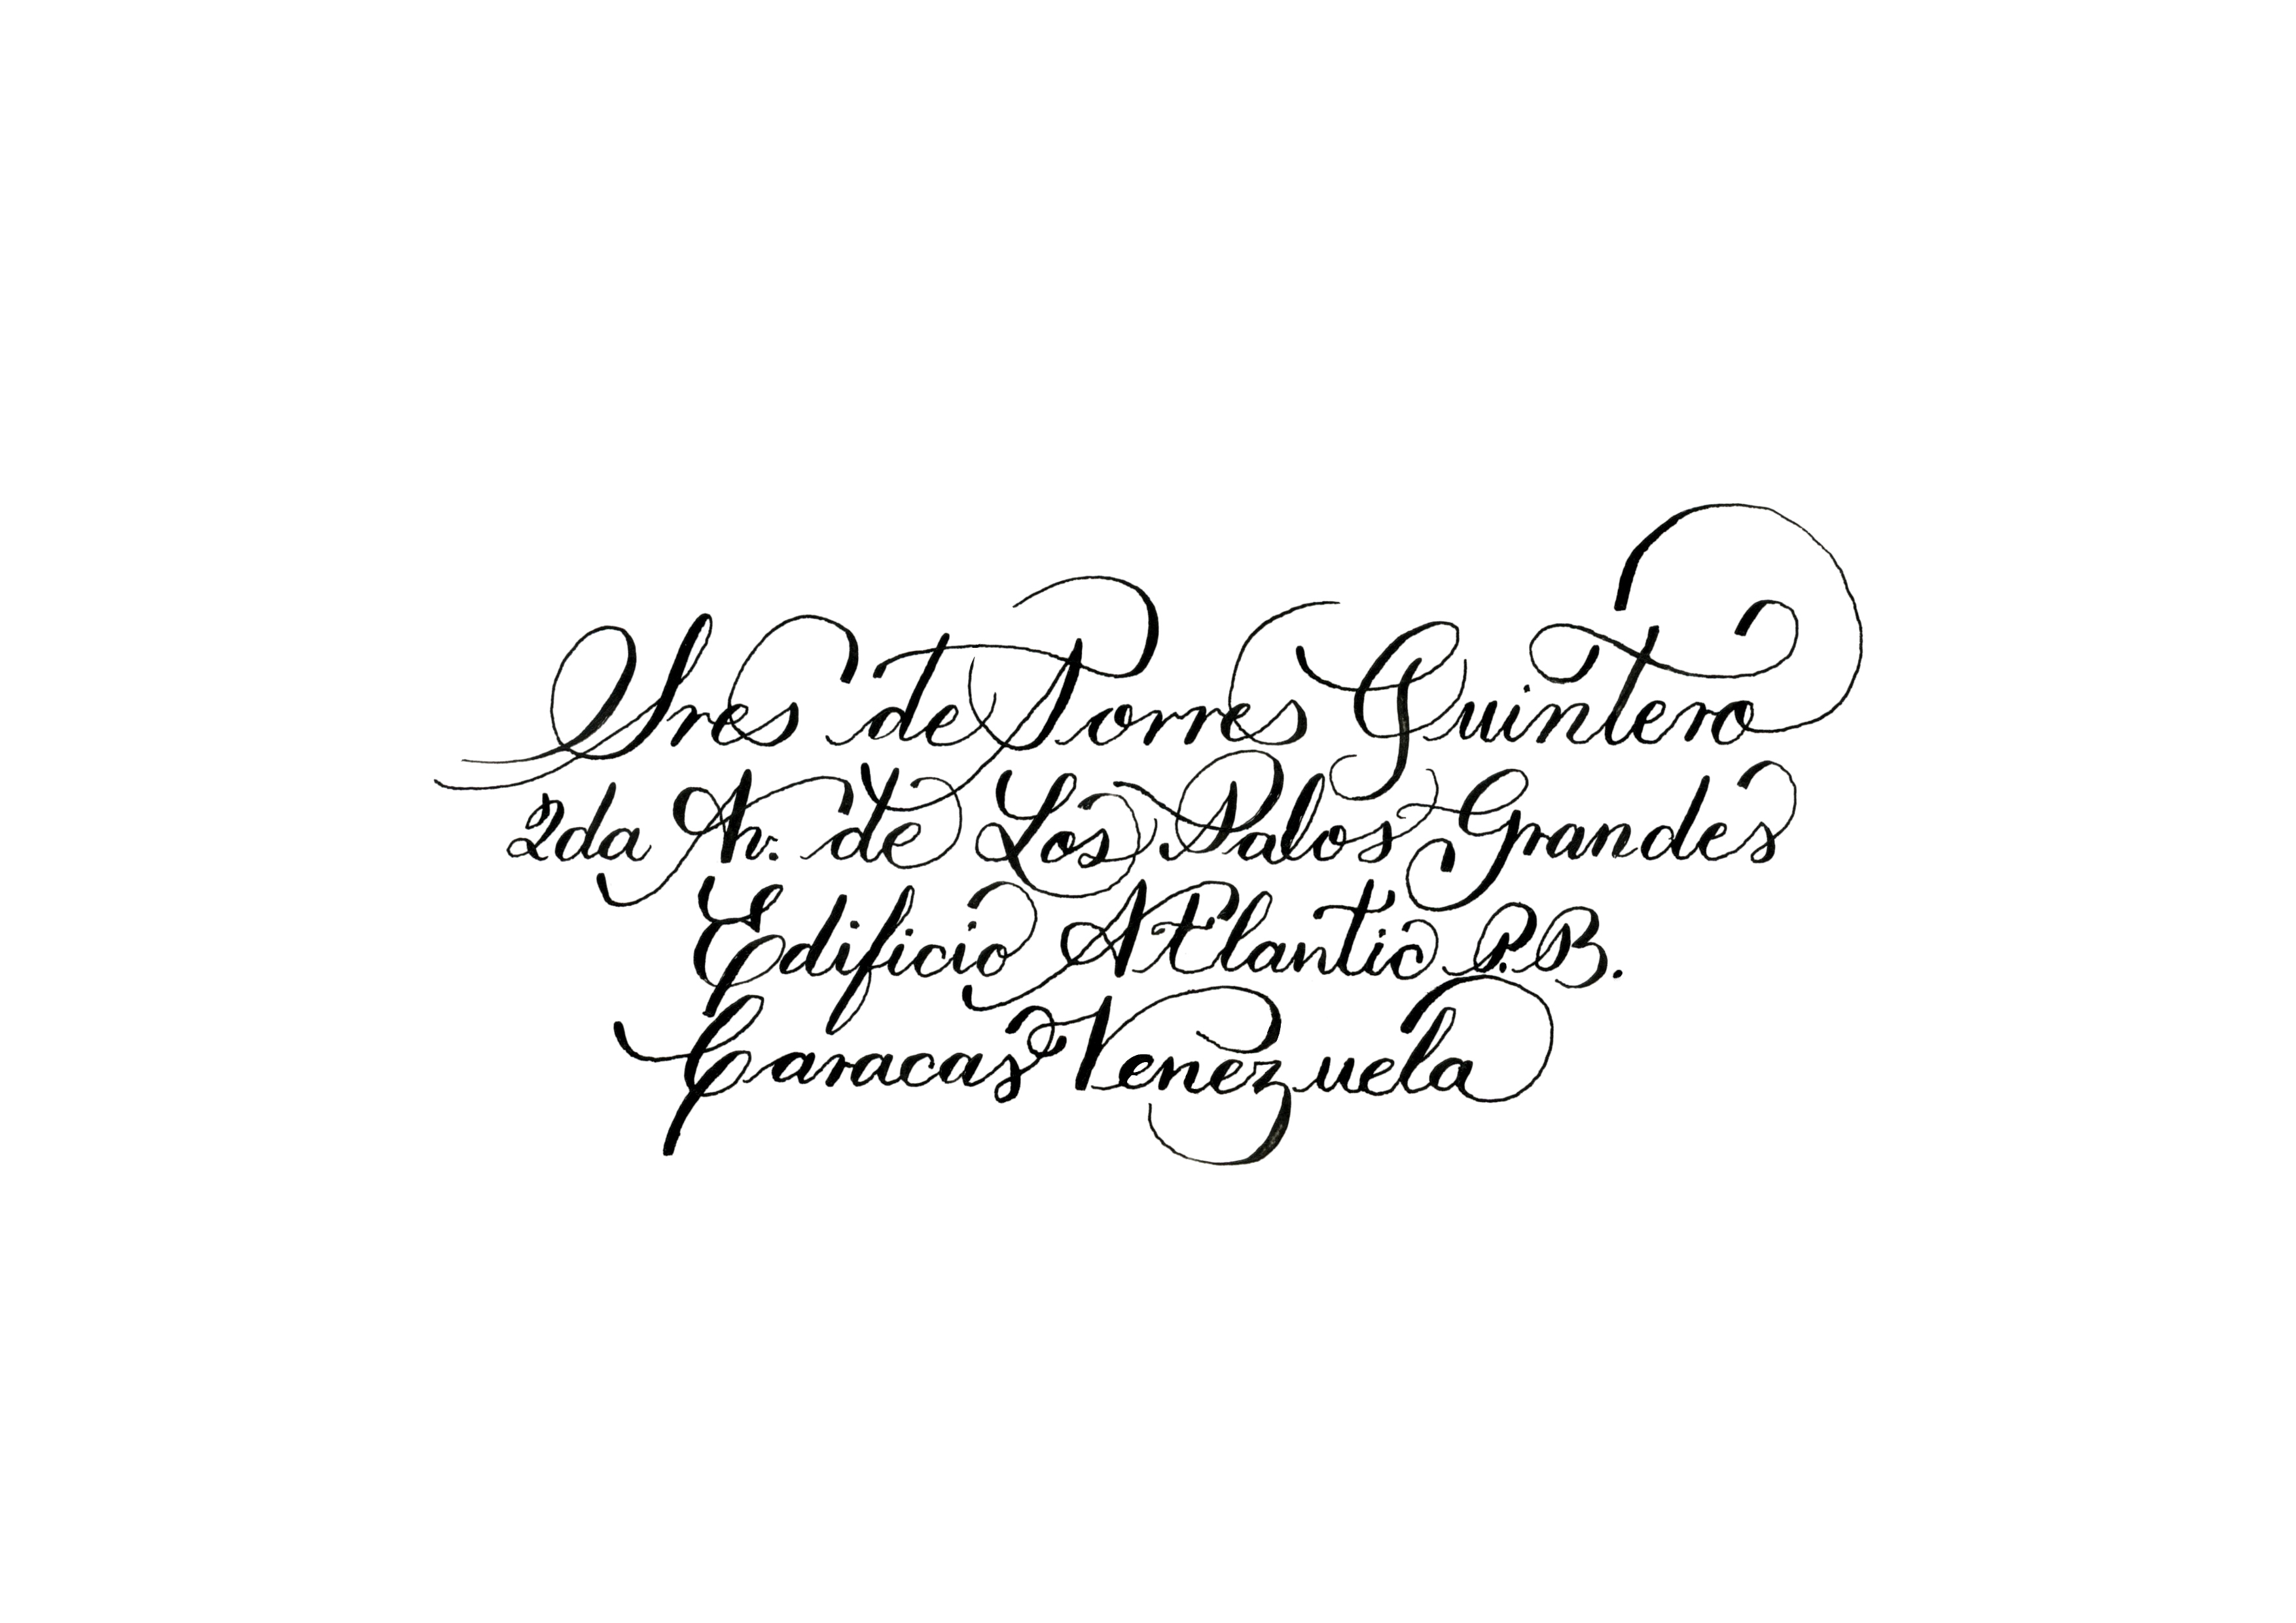 Sres de Torres Quintero
2da Av. de Los Palos Grandes
Edificio Atlantic P.B.
Caracas Venezuela